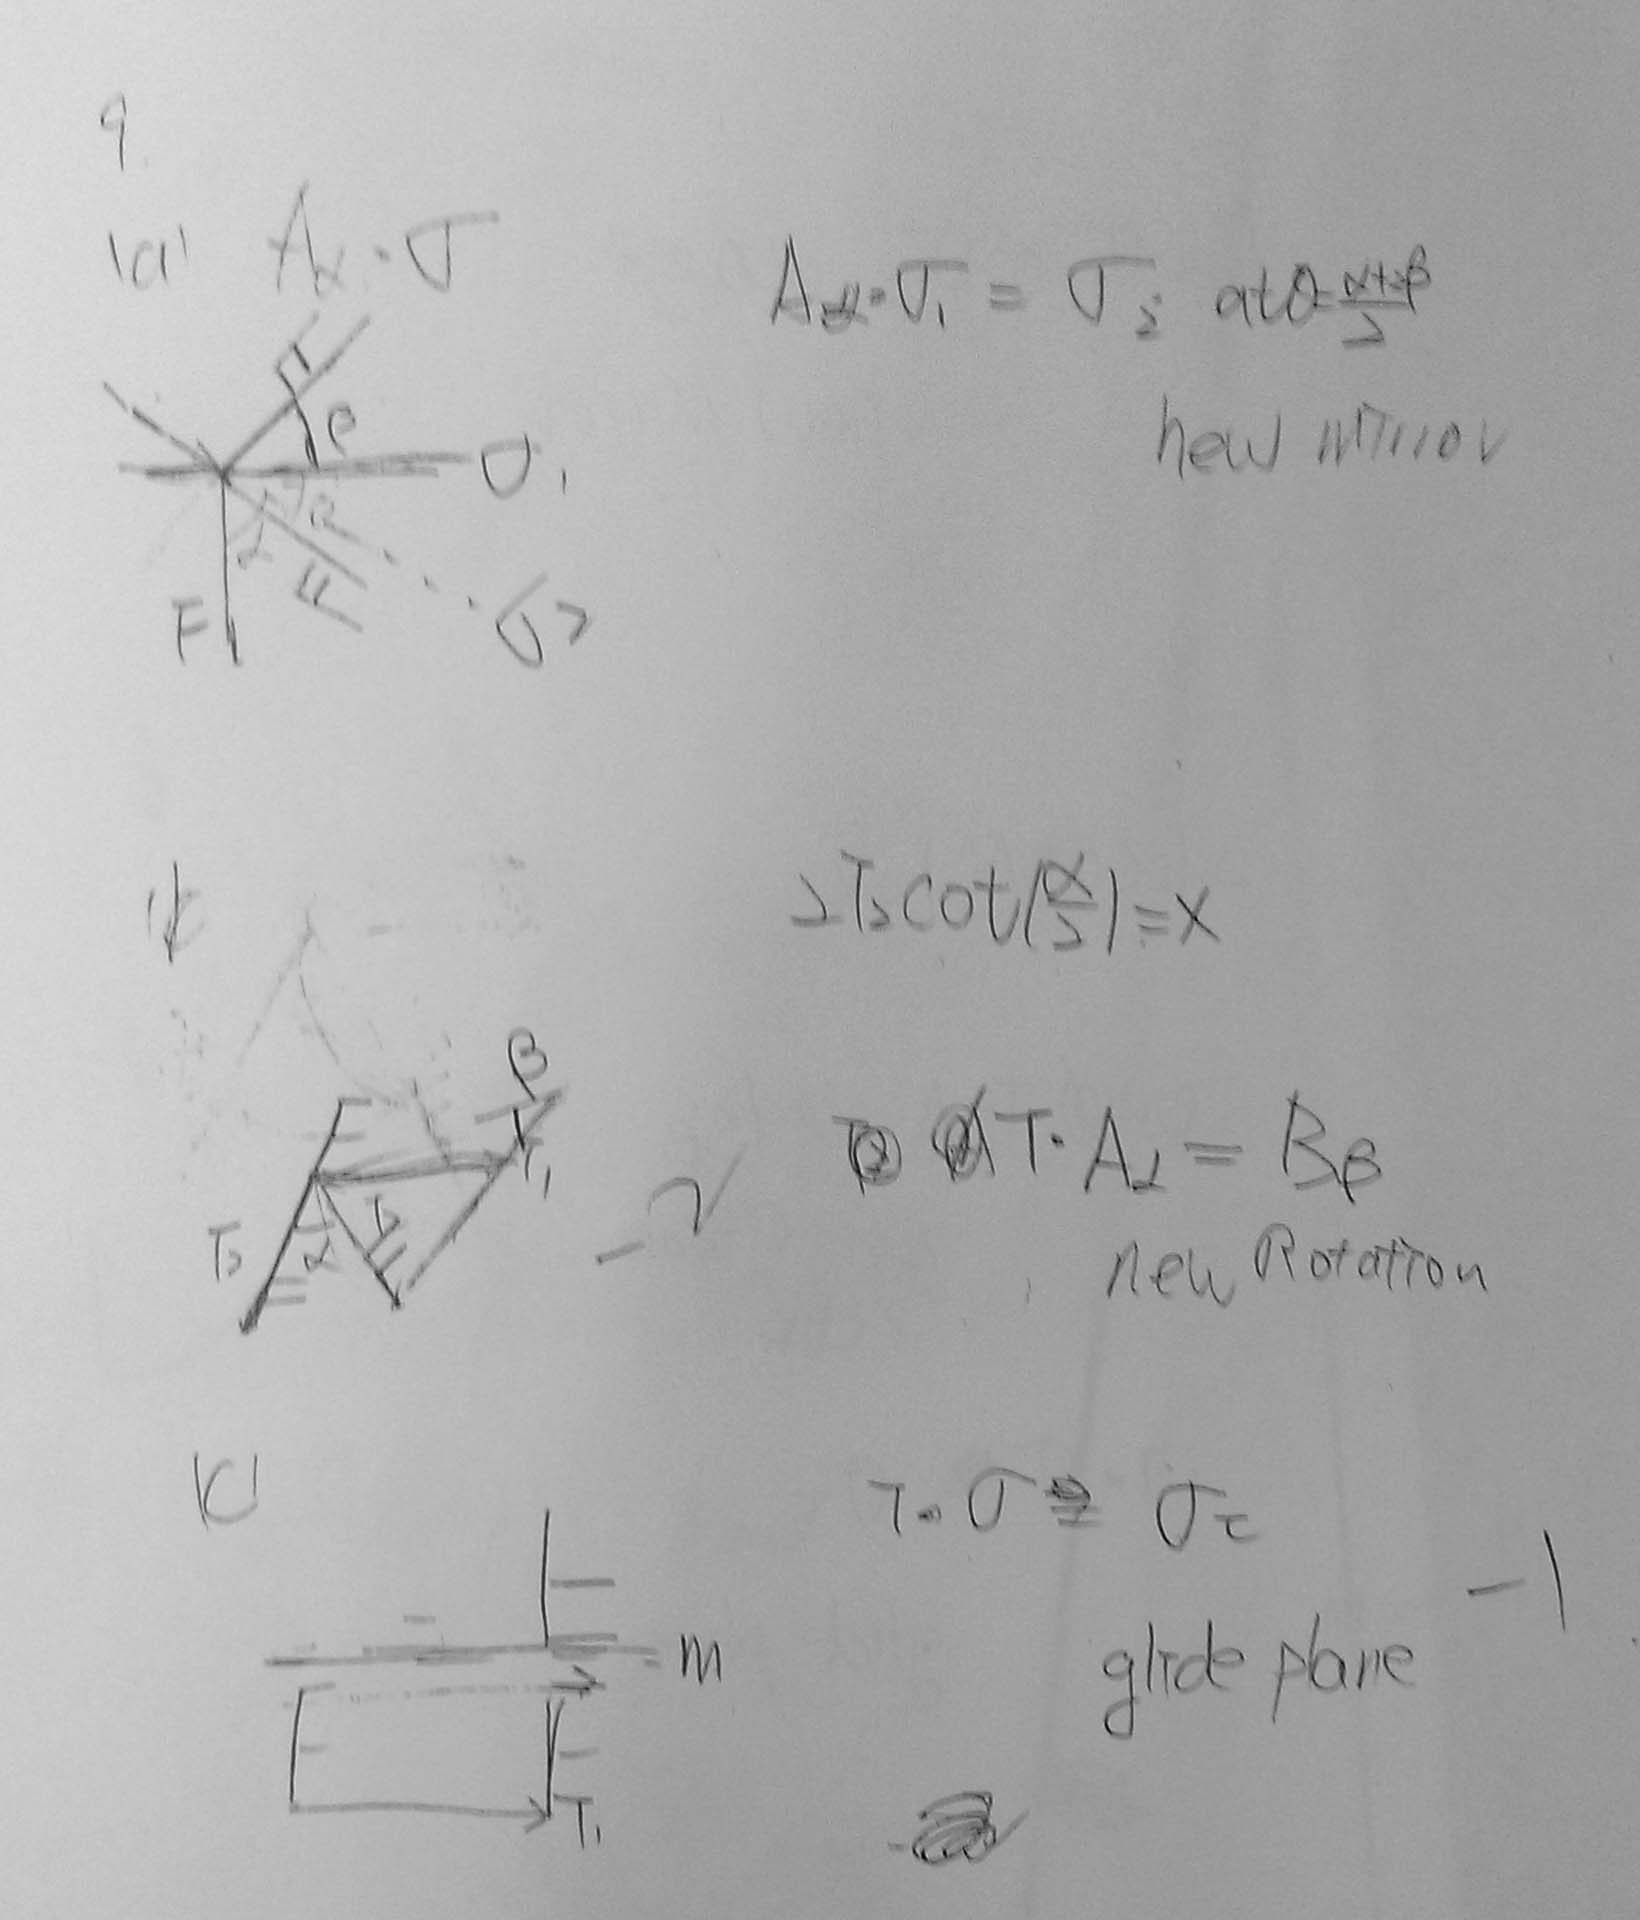 9.
(a) Aα·σ
Aα·σ₁ = σ₂ at θ=(α+2β)/2
new mirror
β
σ₁
β
α
F
F
σ₂
(b)
2T₂cot(α/2)=x
β
F
T₁
T·Aα = Bβ
T₂
α
F
-2
new Rotation
(c)
T·σ = στ
-1
F
m
glide plane
F
F
T₁